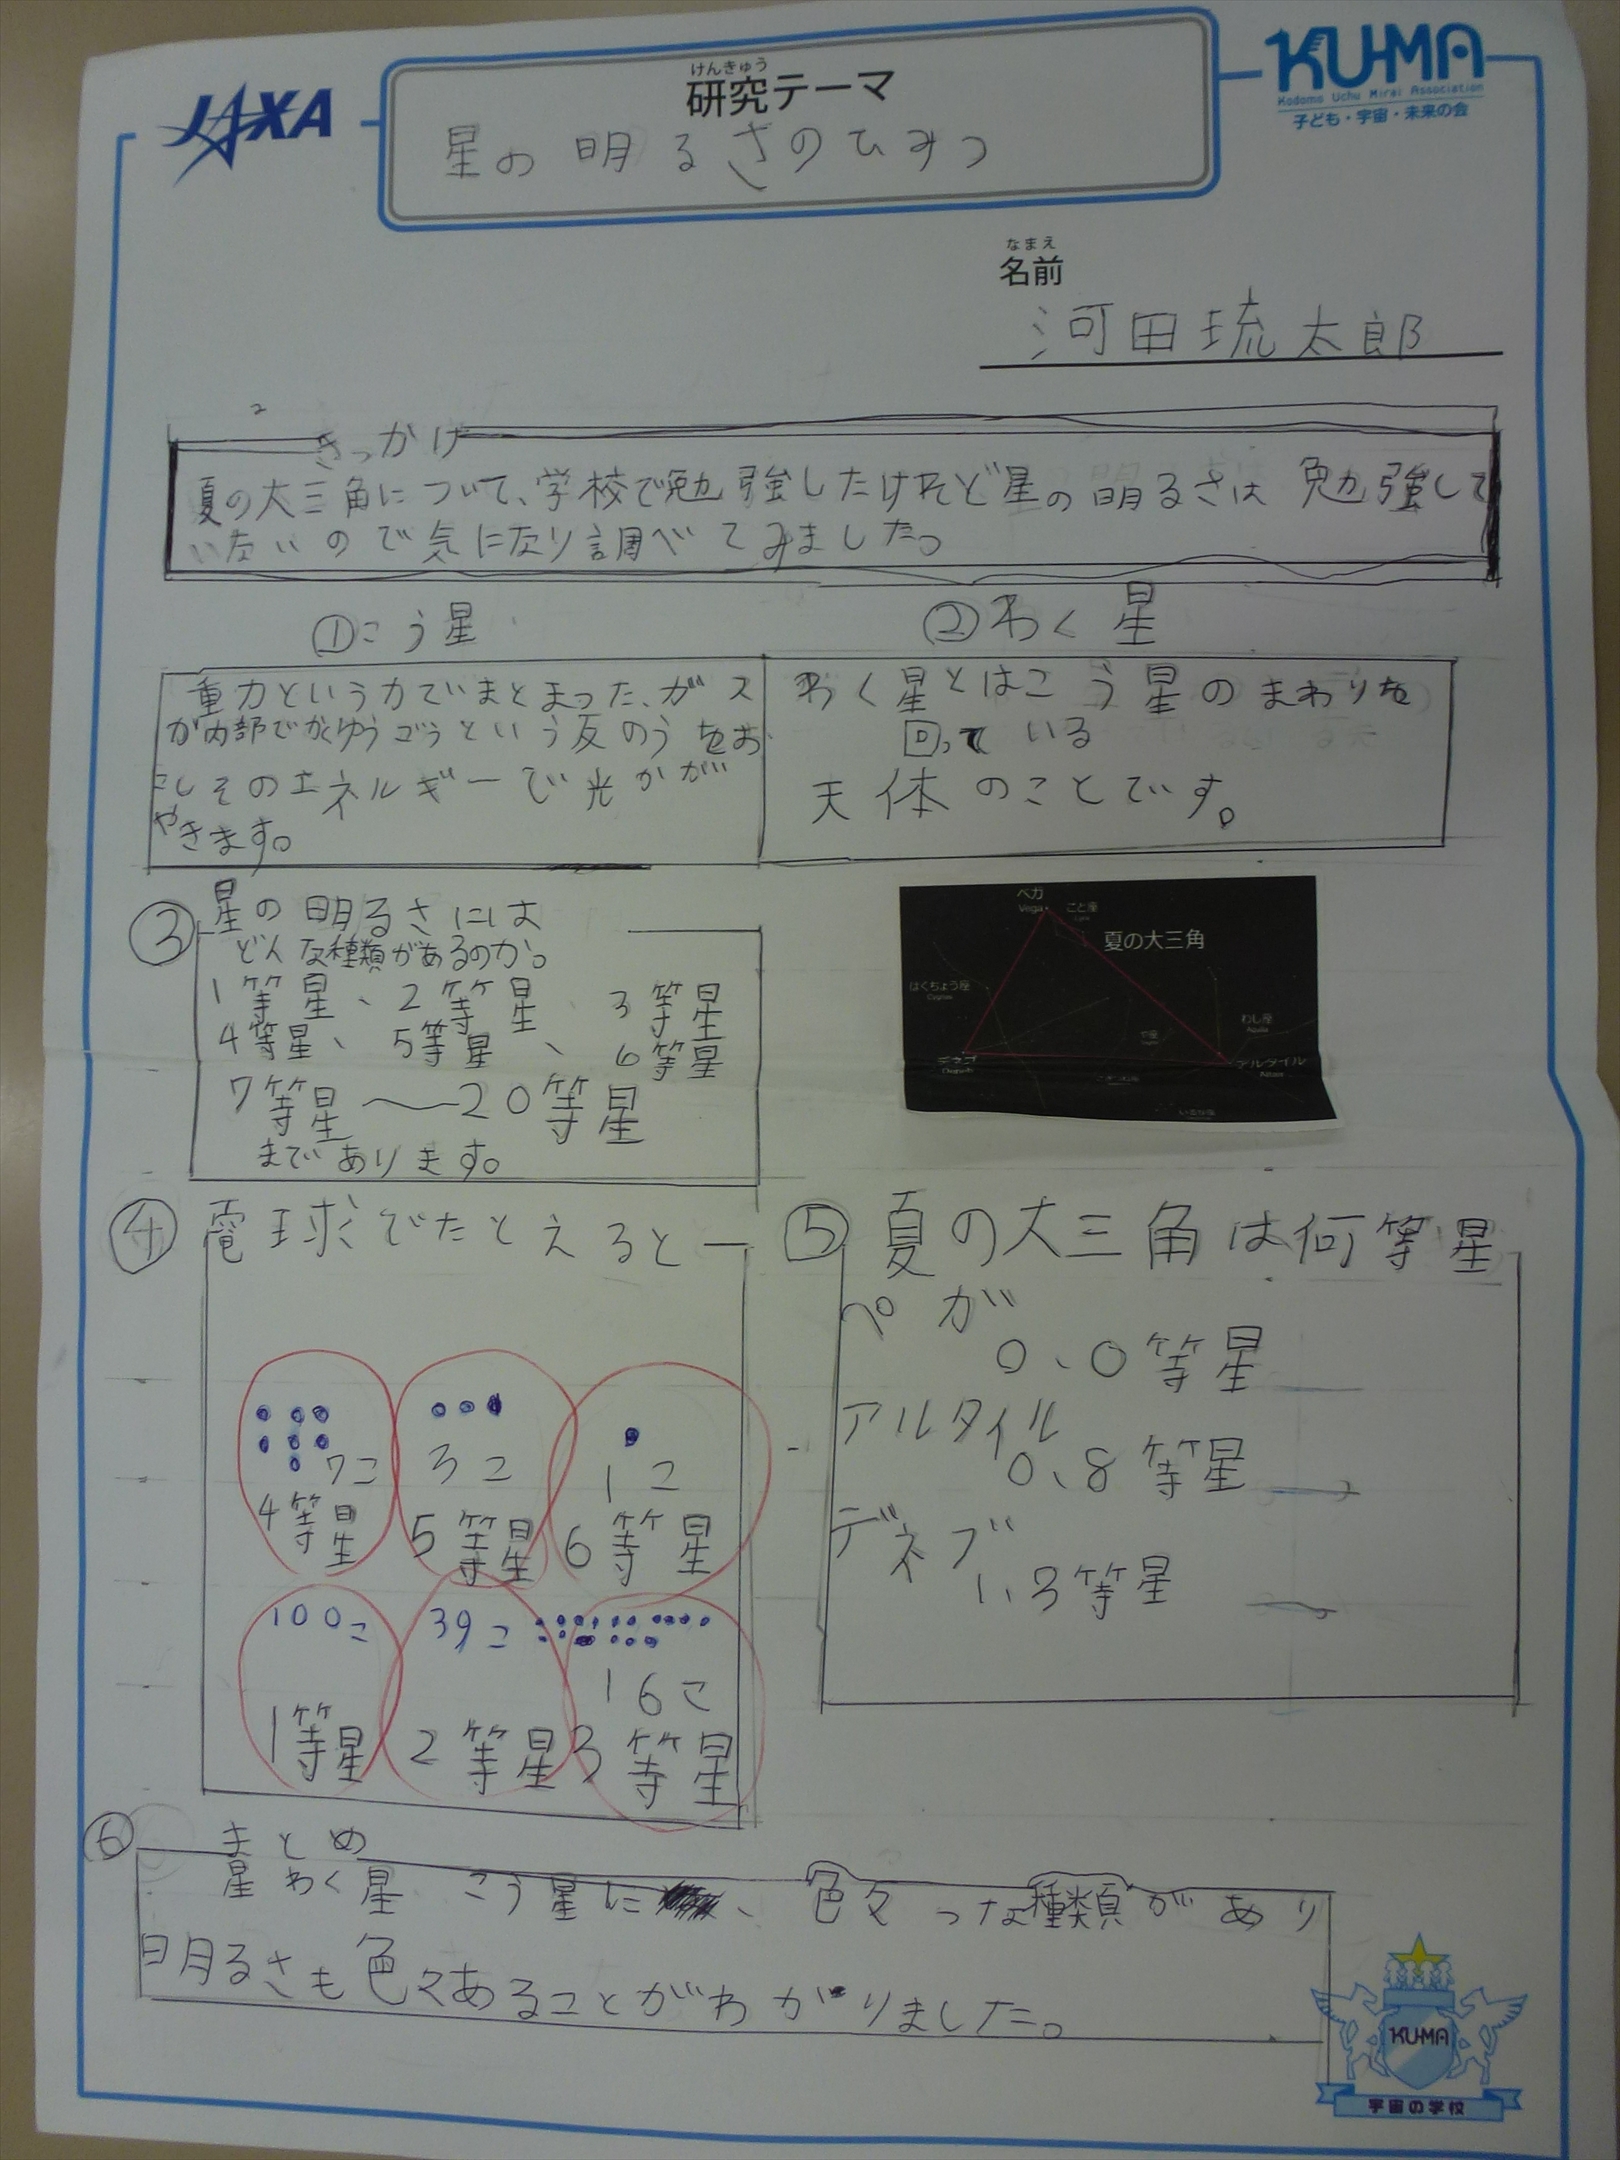 JAXA
けんきゅう
研究テーマ
星の明るさのひみつ
KU-MA
Kodomo Uchu Mirai Association
子ども・宇宙・未来の会
なまえ
名前
河田琉太郎
きっかけ
夏の大三角について、学校で勉強したけれど星の明るさは勉強して
いないので気になり調べてみました。
①こう星
重力という力でまとまった、ガス
が内部でかくゆうごうという反のうをお
こしそのエネルギーで光かがが
やきます。
②わく星
わく星とはこう星のまわりを
回っている
天体のことです。
③星の明るさには
どんな種類があるのか。
1等星、2等星、3等星
4等星、5等星、6等星
7等星〜20等星
まであります。
ベガ
Vega
こと座
夏の大三角
はくちょう座
Cygnus
わし座
Aquila
デネブ
Deneb
アルタイル
Altair
いるか座
④電球でたとえると
7こ
4等星
3こ
5等星
1こ
6等星
100こ
1等星
39こ
2等星
16こ
3等星
⑤夏の大三角は何等星
ベガ
0.0等星
アルタイル
0.8等星
デネブ
1.3等星
⑥まとめ
星わく星 こう星に、色々っな種類があり
明るさも色々あることがわがりました。
KU-MA
宇宙の学校